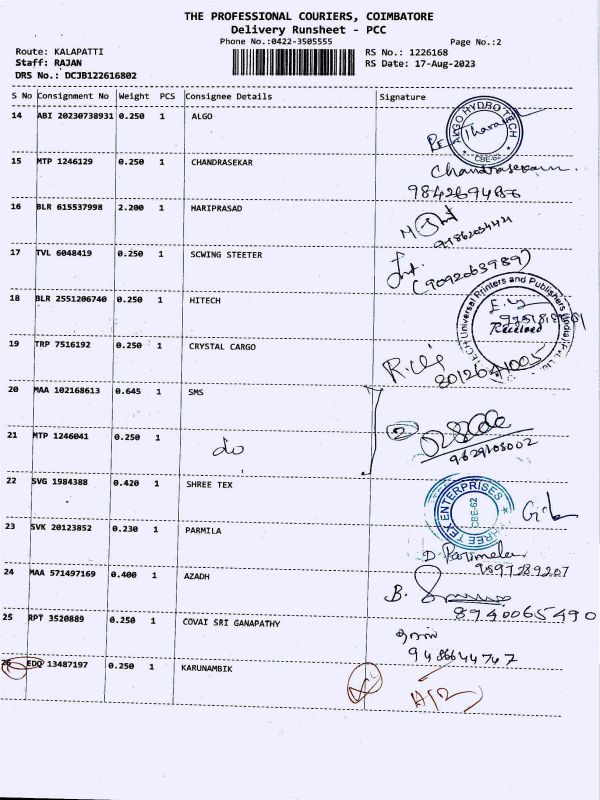 THE PROFESSIONAL COURIERS, COIMBATORE
Delivery Runsheet - PCC
Phone No.:0422-3505555 Page No.:2
Route: KALAPATTI RS No.: 1226168
Staff: RAJAN RS Date: 17-Aug-2023
DRS No.: DCJB122616802
S No Consignment No Weight PCS Consignee Details Signature
14 ABI 20230738931 0.250 1 ALGO
ALGO HYDRO TECH
* CBE-62 *
15 MTP 1246129 0.250 1 CHANDRASEKAR Chandrasekaran
16 BLR 615537998 2.200 1 HARIPRASAD
17 TVL 6048419 0.250 1 SCWING STEETER
(9092063989)
18 BLR 2551206740 0.250 1 HITECH
Universal Printers and Publishers
Received
19 TRP 7516192 0.250 1 CRYSTAL CARGO
20 MAA 102168613 0.645 1 SMS
21 MTP 1246041 0.250 1 do 2
9629103002
22 SVG 1984388 0.420 1 SHREE TEX
SHREE TEX ENTERPRISES
CBE-62
23 SVK 20123852 0.230 1 PARMILA
9597289207
24 MAA 571497169 0.400 1 AZADH B.
8940065490
25 RPT 3520889 0.250 1 COVAI SRI GANAPATHY
9486644747
26 EDQ 13487197 0.250 1 KARUNAMBIK